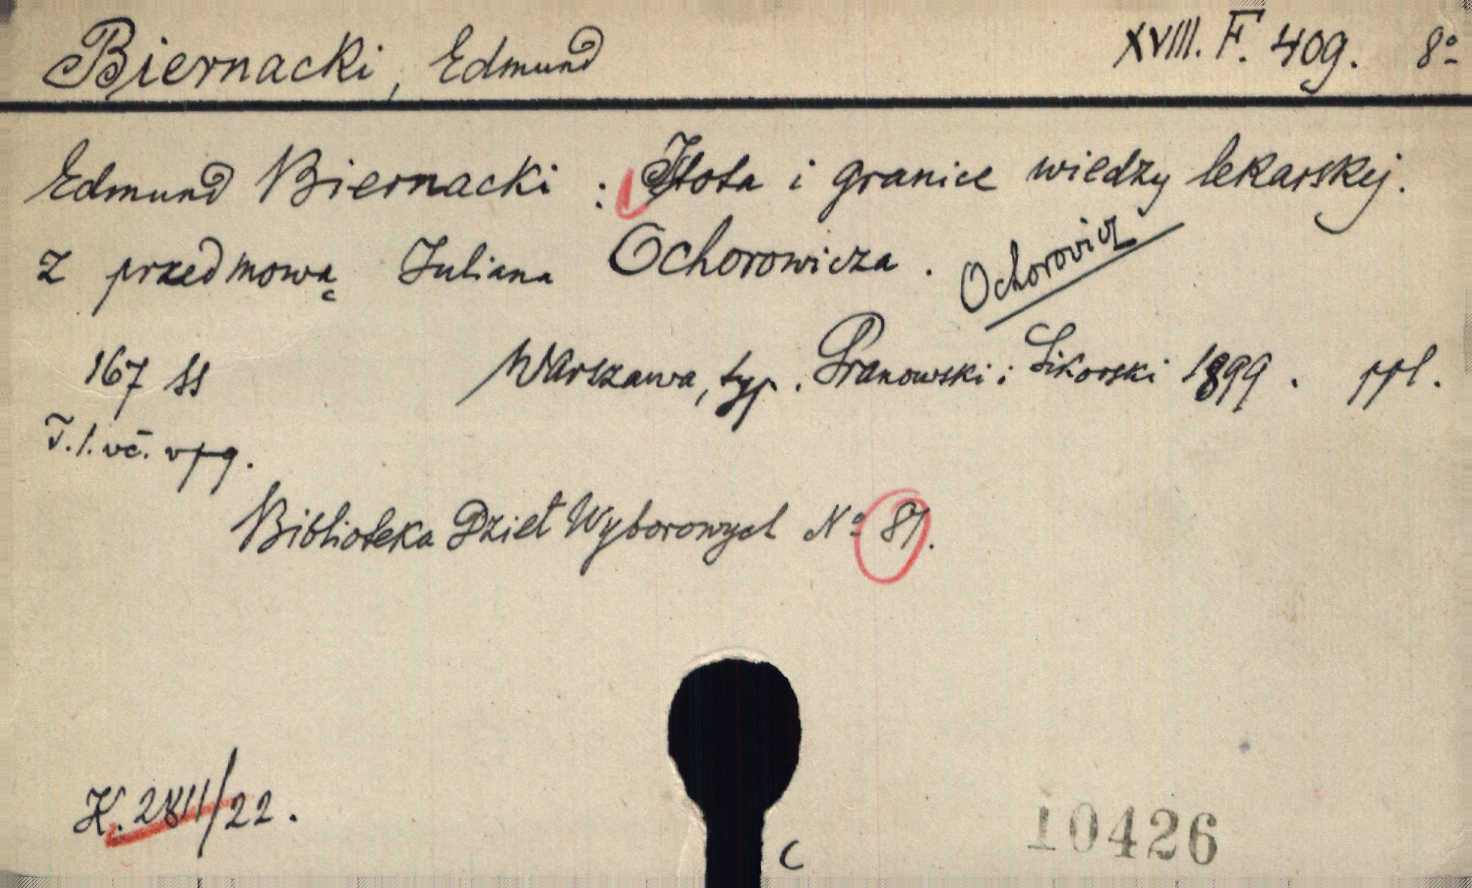 Biernacki, Edmund XVIII. F. 409. 8º
Edmund Biernacki : Istota i granice wiedzy lekarskiej.
Z przedmową Juliana Ochorowicza. Ochorovicz
167 ss Warszawa, typ. Pranowski i Sikorski 1899. ppl.
T. l. vč. vpg.
Biblioteka Dzieł Wyborowych Nº 87.
K. 2811/22.
C
10426